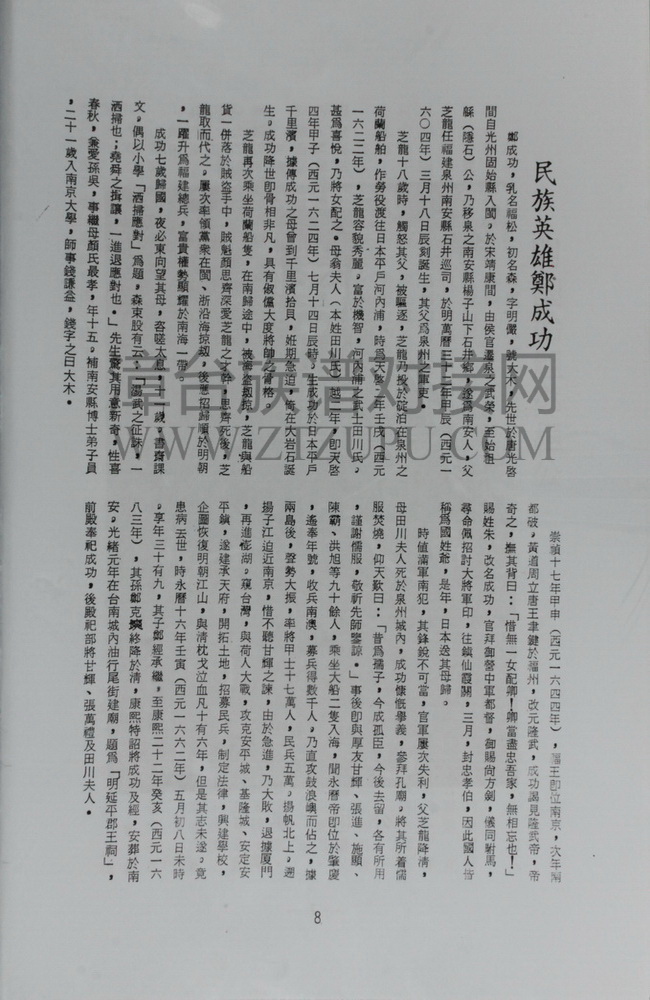 民族英雄鄭成功
鄭成功，乳名福松，初名森，字明儼，號大木，先世於唐光啓
間自光州固始縣入閩。於宋靖康間，由侯官遷泉之武榮，至始祖
縣（隱石）公，乃移泉之南安縣楊子山下石井鄉，遂爲南安人，父
芝龍任福建泉州南安縣石井巡司，於明萬曆三十二年甲辰（西元一
六〇四年）三月十八日辰刻誕生，其父爲泉州之軍吏。
芝龍十八歲時，觸怒其父，被驅逐，芝龍乃投於碇泊在泉州之
荷蘭船舶，作勞役渡往日本平戶河內浦，時爲天啓二年壬戌（西元
一六二二年），芝龍容貌秀麗。富於機智，河內浦之武士田川氏。
甚爲喜悅，乃將女配之。母翁夫人（本姓田川氏）越二年，即天啓
四年甲子（西元一六二四年）七月十四日辰時。生成功於日本平戶
千里濱，據傳成功之母曾到千里濱拾貝，姙期急迫，倚在大岩石誕
生。成功降世即骨相非凡，具有俶儻大度將帥之骨格。
芝龍再次乘坐荷蘭船隻，在南歸途中，被海盜刼掠，芝龍與船
貨一併落於賊盜手中，賊魁顏思齊深愛芝龍之才幹，思齊死後，芝
龍取而代之。屢次率領黨衆在閩、浙沿海掠刼，後應招歸順於明朝
，一躍升爲福建總兵，富貴權勢顯耀於南海一帶。
成功七歲歸國，夜必東向望其母，咨嗟太息，十一歲。書齋課
文。偶以小學「洒掃應對」爲題，森東股有云：「湯武之征誅，一
洒掃也；堯舜之揖讓，一進退應對也。」先生驚其用意新奇，性喜
春秋，兼愛孫吳，事繼母顏氏最孝，年十五。補南安縣博士弟子員
，二十一歲入南京大學，師事錢謙益，錢字之曰大木。
崇禎十七年甲申（西元一六四四年），福王即位南京，次年南
都破。黃道周立唐王聿鍵於福州，改元隆武，成功謁見隆武帝，帝
奇之，撫其背曰：「惜無一女配卿！卿當盡忠吾家，無相忘也！」
賜姓朱，改名成功，官拜御營中軍都督，御賜尚方劍，儀同駙馬，
尋命佩招討大將軍印，往鎮仙霞關，三月，封忠孝伯，因此國人皆
稱爲國姓爺，是年，日本送其母歸。
時値滿軍南犯，其鋒銳不可當，官軍屢次失利，父芝龍降清，
母田川夫人死於泉州城內，成功慷慨擧義，參拜孔廟。將其所着儒
服焚燒，仰天歎曰：「昔爲孺子，今成孤臣，今後去留，各有所用
，謹謝儒服，敬祈先師鑒諒。」事後即與厚友甘輝、張進、施顯、
陳霸、洪旭等九十餘人，乘坐大船二隻入海，聞永曆帝即位於肇慶
，遙奉年號，收兵南澳，募兵得數千人。乃直攻鼓浪嶼而佔之，據
兩島後，聲勢大振，率將甲士十七萬人，民兵五萬。揚帆北上。遡
揚子江迫近南京，惜不聽甘輝之諫，由於急進，乃大敗，退據廈門
，再進澎湖。窺台灣，與荷人大戰，攻克安平城、基隆城、安定安
平鎮，遂建承天府，開拓土地，招募民兵，制定法律，興建學校，
企圖恢復明朝江山，與清枕戈泣血凡十有六年，但是其志未遂。竟
患病去世，時永曆十六年壬寅（西元一六六二年）五月初八日未時
。享年三十有九，其子鄭經承繼。至康熙二十二年癸亥（西元一六
八三年），其孫鄭克塽終降於清，康熙特詔將成功及經，安葬於南
安。光緒元年在台南城內油行尾街建廟，題爲「明延平郡王祠」，
前殿奉祀成功，後殿祀部將甘輝、張萬禮及田川夫人。
8
漳台族谱对接网
WWW.ZTZUPU.COM